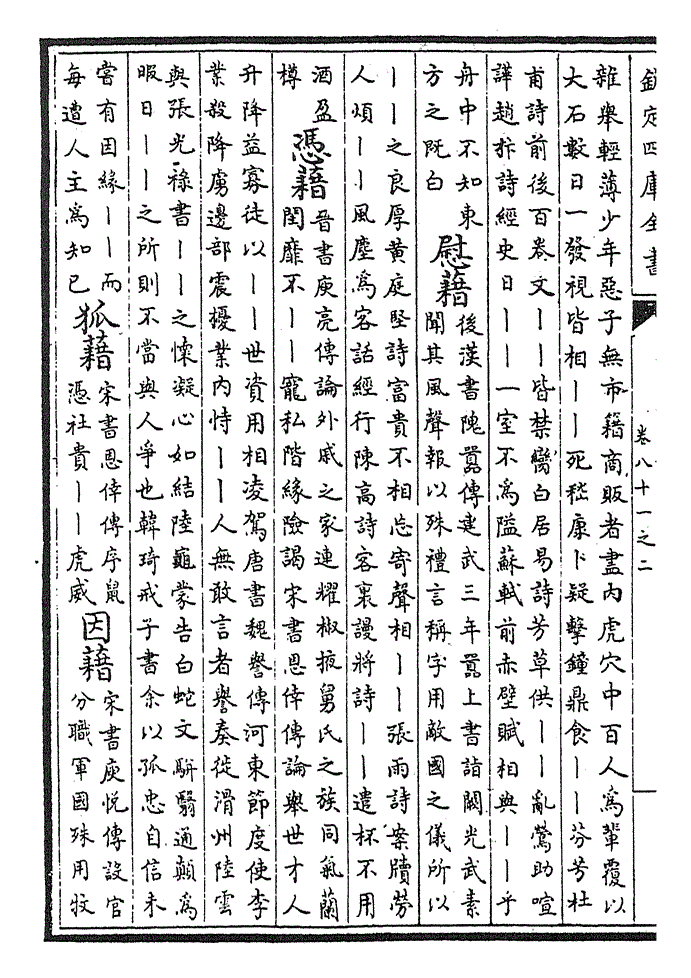 欽定四庫全書
卷八十一之二
雜舉輕薄少年惡子無市籍商販者盡內虎穴中百人爲輩覆以
大石數日一發視皆相丨丨死嵇康卜疑擊鐘鼎食丨丨芬芳杜
甫詩前後百卷文丨丨皆禁臠白居易詩芳草供丨丨亂鶯助喧
譁趙抃詩經史日丨丨一室不爲隘蘇軾前赤壁賦相與丨丨乎
舟中不知東
方之既白
慰藉
後漢書隗囂傳建武三年囂上書詣闕光武素
聞其風聲報以殊禮言稱字用敵國之儀所以
丨丨之良厚黃庭堅詩富貴不相忘寄聲相丨丨張雨詩案牘勞
人煩丨丨風塵爲客話經行陳高詩客裏謾將詩丨丨遣杯不用
酒盈
樽
憑藉
晉書庾亮傳論外戚之家連耀椒掖舅氏之族同氣蘭
閨靡不丨丨寵私階緣險謁宋書恩倖傳論舉世才人
升降益寡徒以丨丨世資用相凌駕唐書魏謩傳河東節度使李
業殺降虜邊部震擾業內恃丨丨人無敢言者謩奏徙滑州陸雲
與張光祿書丨丨之懷凝心如結陸龜蒙告白蛇文駢翳通顛爲
暇日丨丨之所則不當與人爭也韓琦戒子書余以孤忠自信未
嘗有因緣丨丨而
每遭人主爲知己
狐藉
宋書恩倖傳序鼠
憑社貴丨丨虎威
因藉
宋書庾悅傳設官
分職軍國殊用牧